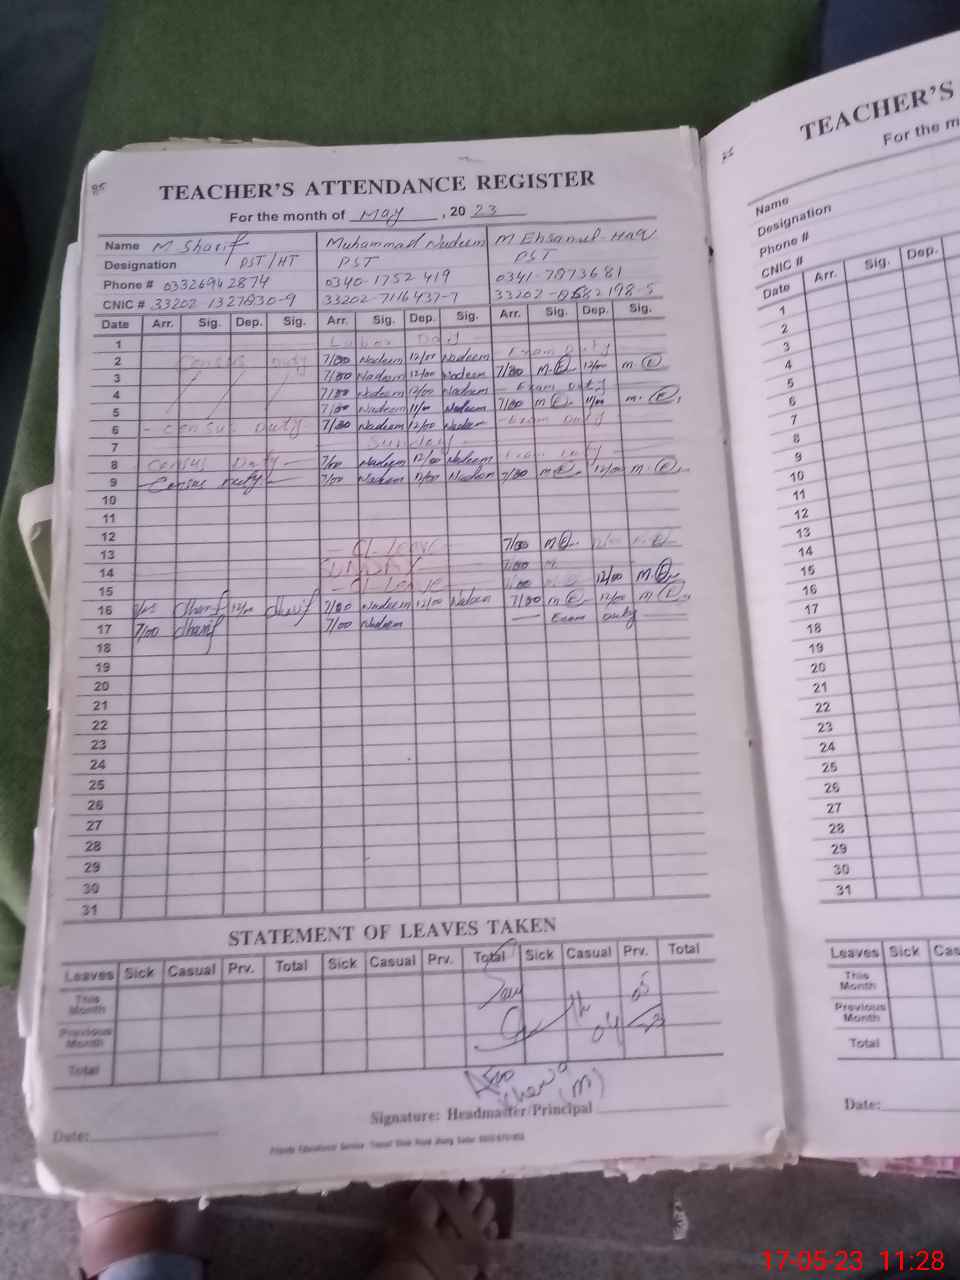 85
TEACHER'S ATTENDANCE REGISTER
For the month of May, 2023
Name M Sharif Muhammad Nadeem M Ehsanul-Haq
Designation PST/HT PST PST
Phone # 03326942874 0340-1752419 0341-7873681
CNIC # 33202 1327830-9 33202-7116437-7 33202-
Date Arr. Sig. Dep. Sig. Arr. Sig. Dep. Sig. Arr. Sig. Dep. Sig.
1 Labor Day
2 Census Duty 7/00 Nadeem 12/00 Nadeem Exam Duty
3 7/00 Nadeem 12/00 Nadeem 7/00 M. E 12/00 M. E
4 7/00 Nadeem 12/00 Nadeem - Exam Duty
5 7/00 Nadeem 11/00 Nadeem 7/00 M. E 11/00 M. E
6 - Census Duty - 7/00 Nadeem 12/00 Nadeem - Exam Duty
7 Sunday -
8 Census Duty - 7/00 Nadeem 12/00 Nadeem Exam Duty -
9 - Census Duty - 7/00 Nadeem 12/00 Nadeem 7/00 M. E 12/00 M. E
10
11
12
13 - CL Leave - 7/00 M. E 12/00 M. E
14 SUNDAY 7/00 M.
15 - CL Leave - 7/00 12/00 M. E
16 Sharif 12/00 Sharif 7/00 Nadeem 12/00 Nadeem 7/00 M E 12/00 M E
17 7/00 Sharif 7/00 Nadeem - Exam Duty
18
19
20
21
22
23
24
25
26
27
28
29
30
31
STATEMENT OF LEAVES TAKEN
Leaves Sick Casual Prv. Total Sick Casual Prv. Total Sick Casual Prv. Total
This Month
Previous Month
Total
04 05 23
AEO
(M)
Signature: Headmaster/Principal
Date:
TEACHER'S
For the m
Name
Designation
Phone #
CNIC #
Date Arr. Sig. Dep.
1
2
3
4
5
6
7
8
9
10
11
12
13
14
15
16
17
18
19
20
21
22
23
24
25
26
27
28
29
30
31
Leaves Sick Cas
This Month
Previous Month
Total
Date:
17-05-23 11:28